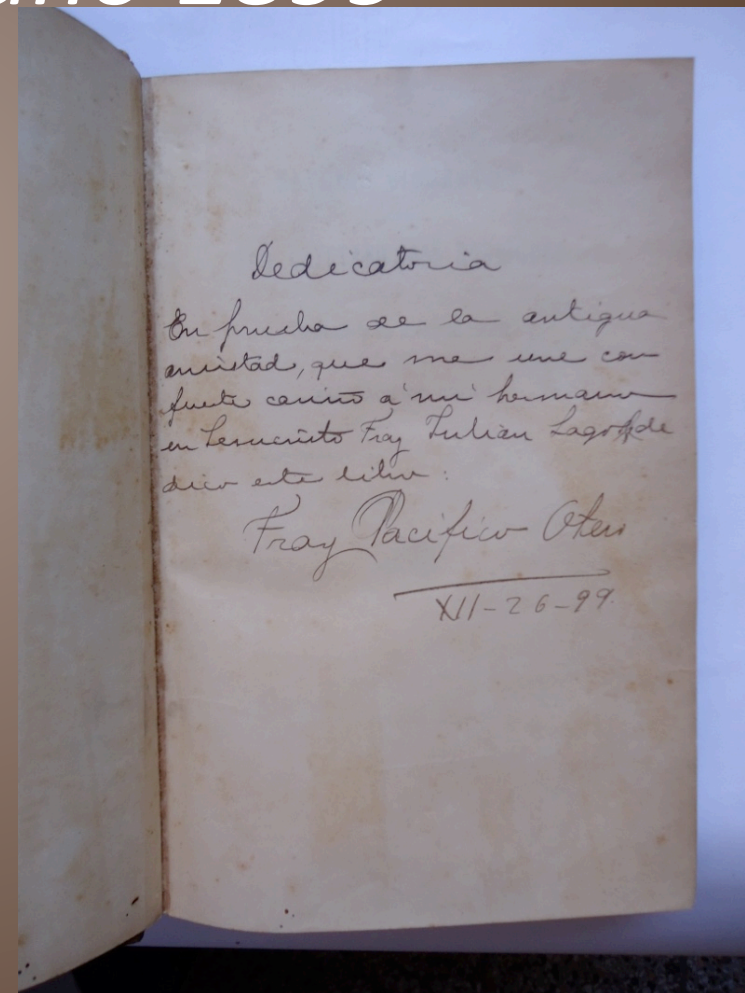 Dedicatoria
En prueba de la antigua
amistad, que me une con
fuerte cariño á mi hermano
en Jesucristo Fray Julian Lagos de
dico este libro:
Fray Pacifico Otero
XII-26-99